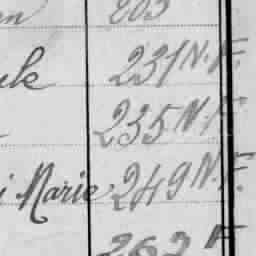 203
231 N. F.
235 N. F.
Marie 249 N. F.
262 F